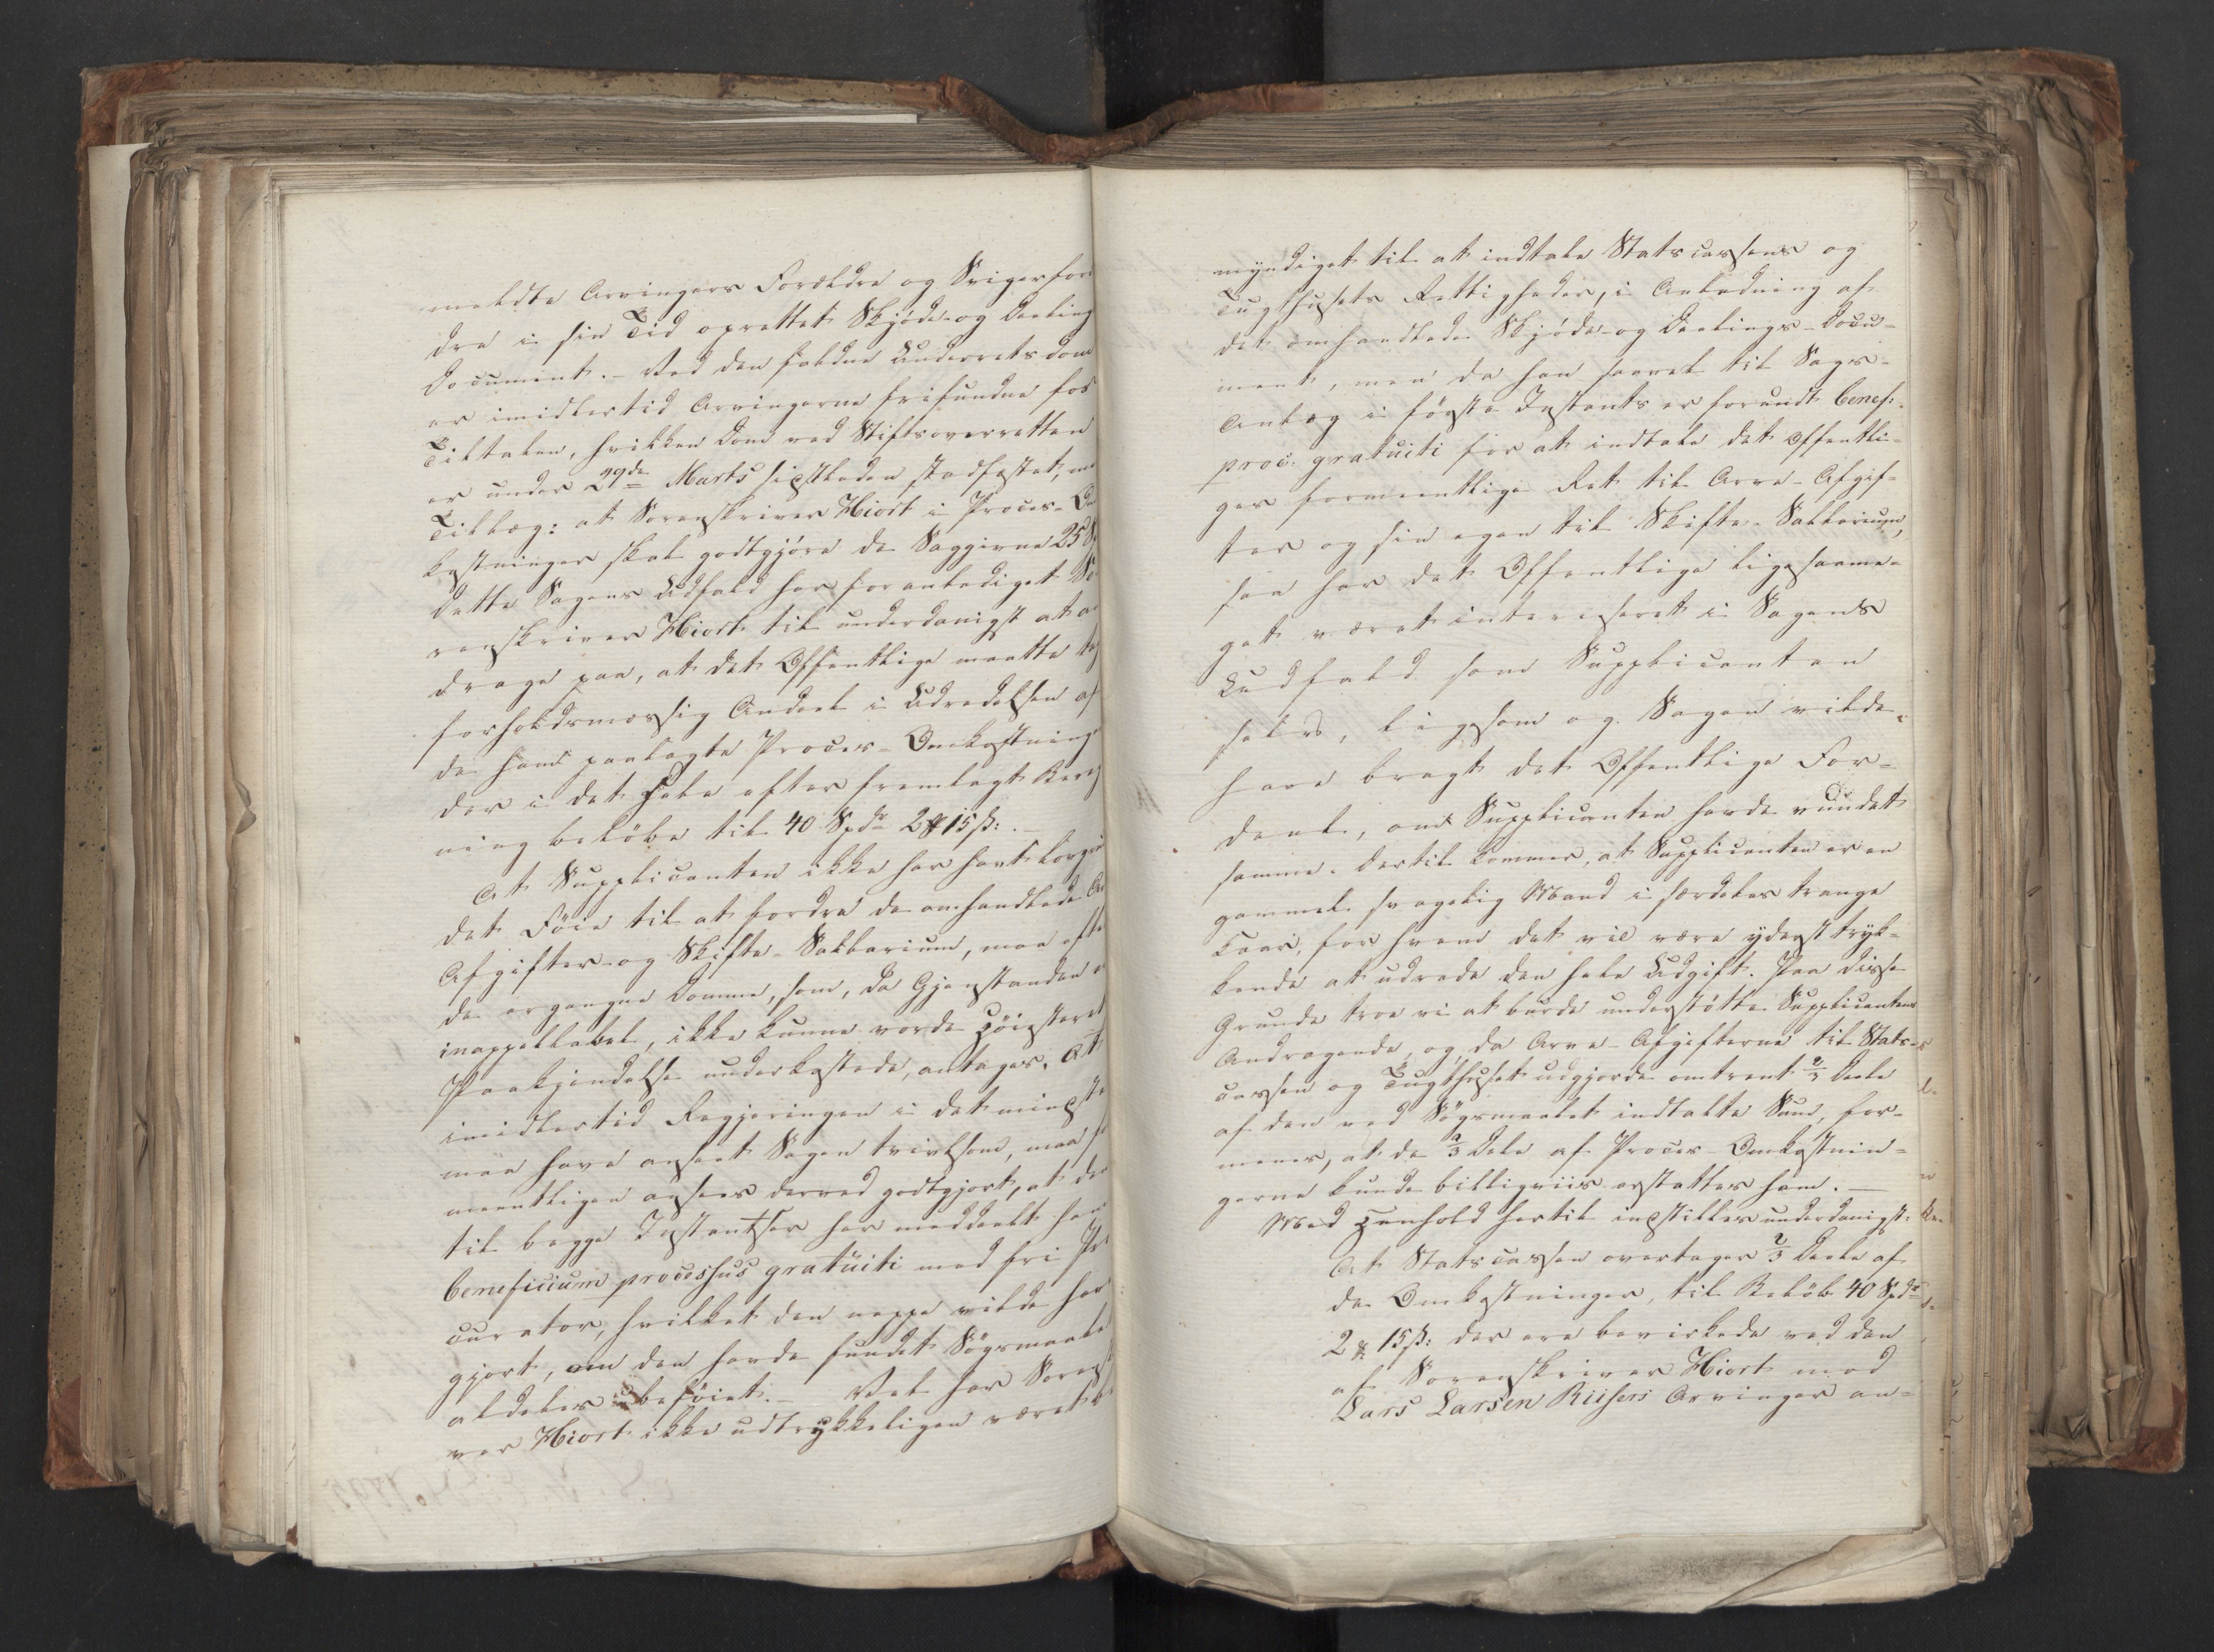 meldte Arvingers Forældre og Svigerfor
dre i sin Tid oprettet Skjøde- og Deeling
Document. - Ved den faldne Underrets Dom
er imidlertid Arvingerne frifundne for
Tiltalen, hvilken Dom ved Stiftsoverretten
er under 29de Marts sidstleden stadfæstet, me
Tillæg: at Sorenskriver Hiort i Proces-Om
kostninger skal godtgjøre de Saggivne 25 S
Dette Sagens Udfald har foranlediget So
renskriver Hiort til underdanigst at an
drage paa, at det Offentlige maatte tag
forholdsmæssig Andeel i Udredelsen af
de ham paalagte Proces-Omkostninge
der i det Hele efter fremlagt Bereg
ning beløbe til 40 Spdr 2 ₰ 15 ß. -
At Supplicanten ikke har havt
det Føie til at fordre de omhandlede Ar
Afgifter og Skifte-Sallarium, maa efte
de ergangne Domme, som, da Gjenstanden e
inappellabel, ikke kunne vorde Høiesteret
Paakjendelse underkastede, antages. At
imidlertid Regjeringen i det mindste
maa have anseet Sagen tvivlsom, maa fo
meentligen ansees derved godtgjort, at den
til begge Instantser har meddeelt ham
beneficium processus gratuiti med fri Pro
curator, hvilket den neppe vilde hav
gjort, om den havde fundet Søgsmaale
aldeles ubeføiet. - Vel har Sorensk
ver Hiort ikke udtrykkeligen været b
myndiget til at indtale Statscassens og
Tugthusets Rettigheder, i Anledning af
det omhandlede Skjøde- og Deelings-Docu-
ment, men da han saavel til Sags-
Anlæg i første Instants er forundt benef:
proc: gratuiti for at indtale det Offentli-
ges formeentlige Ret til Arve-Afgif-
ter og sin egen til Skifte-Sallarium,
saa har det Offentlige ligesaame-
get været interesseret i Sagens
Udfald som Supplicanten
selv, ligesom og Sagen vilde
have bragt det Offentlige For-
deel, om Supplicanten havde vundet
samme. Dertil kommer, at Supplicanten er en
gammel svagelig Mand i særdeles trange
Kaar, for hvem det vil være yderst tryk-
kende at udrede den hele Udgift. Paa disse
Grunde troe vi at burde understøtte Supplicantens
Andragende, og da Arve-Afgifterne til Stats-
cassen og Tugthuset udgjorde omtrent 2/3 Deele
af den ved Søgsmaalet indtalte Sum, for-
menes, at de 2/3 Dele af Proces-Omkostnin-
gerne kunde billigviis erstattes ham. -
Med Henhold hertil indstilles underdanigst:
At Statscassen overtager 2/3 Deele af
de Omkostninger, til Beløb 40 Spdr
2 ₰ 15 ß: der ere bevirkede ved den
af Sorenskriver Hiort mod
Lars Larsen Riisers Arvinger an-